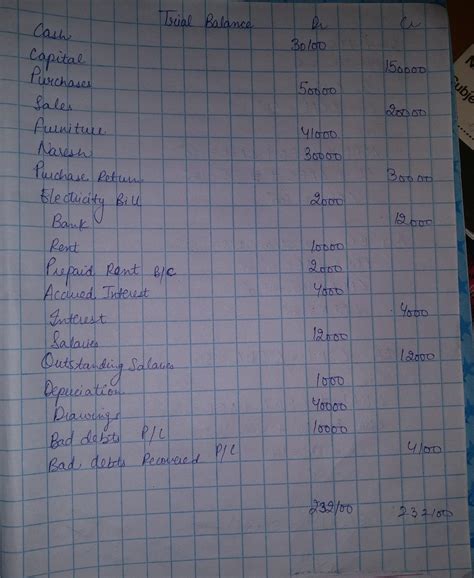 Trial Balance Dr Cr
Cash 30100
Capital 150000
Purchases 50000
Sales 20000
Furniture 41000
Naresh 30000
Purchase Return 30000
Electricity Bill 2000
Bank 12000
Rent 10000
Prepaid Rent B/C 2000
Accrued Interest 4000
Interest 4000
Salaries 12000
Outstanding Salaries 12000
Depreciation 1000
Drawings 40000
Bad debts P/L 10000
Bad debts Recovered P/L 4100
232100 232100